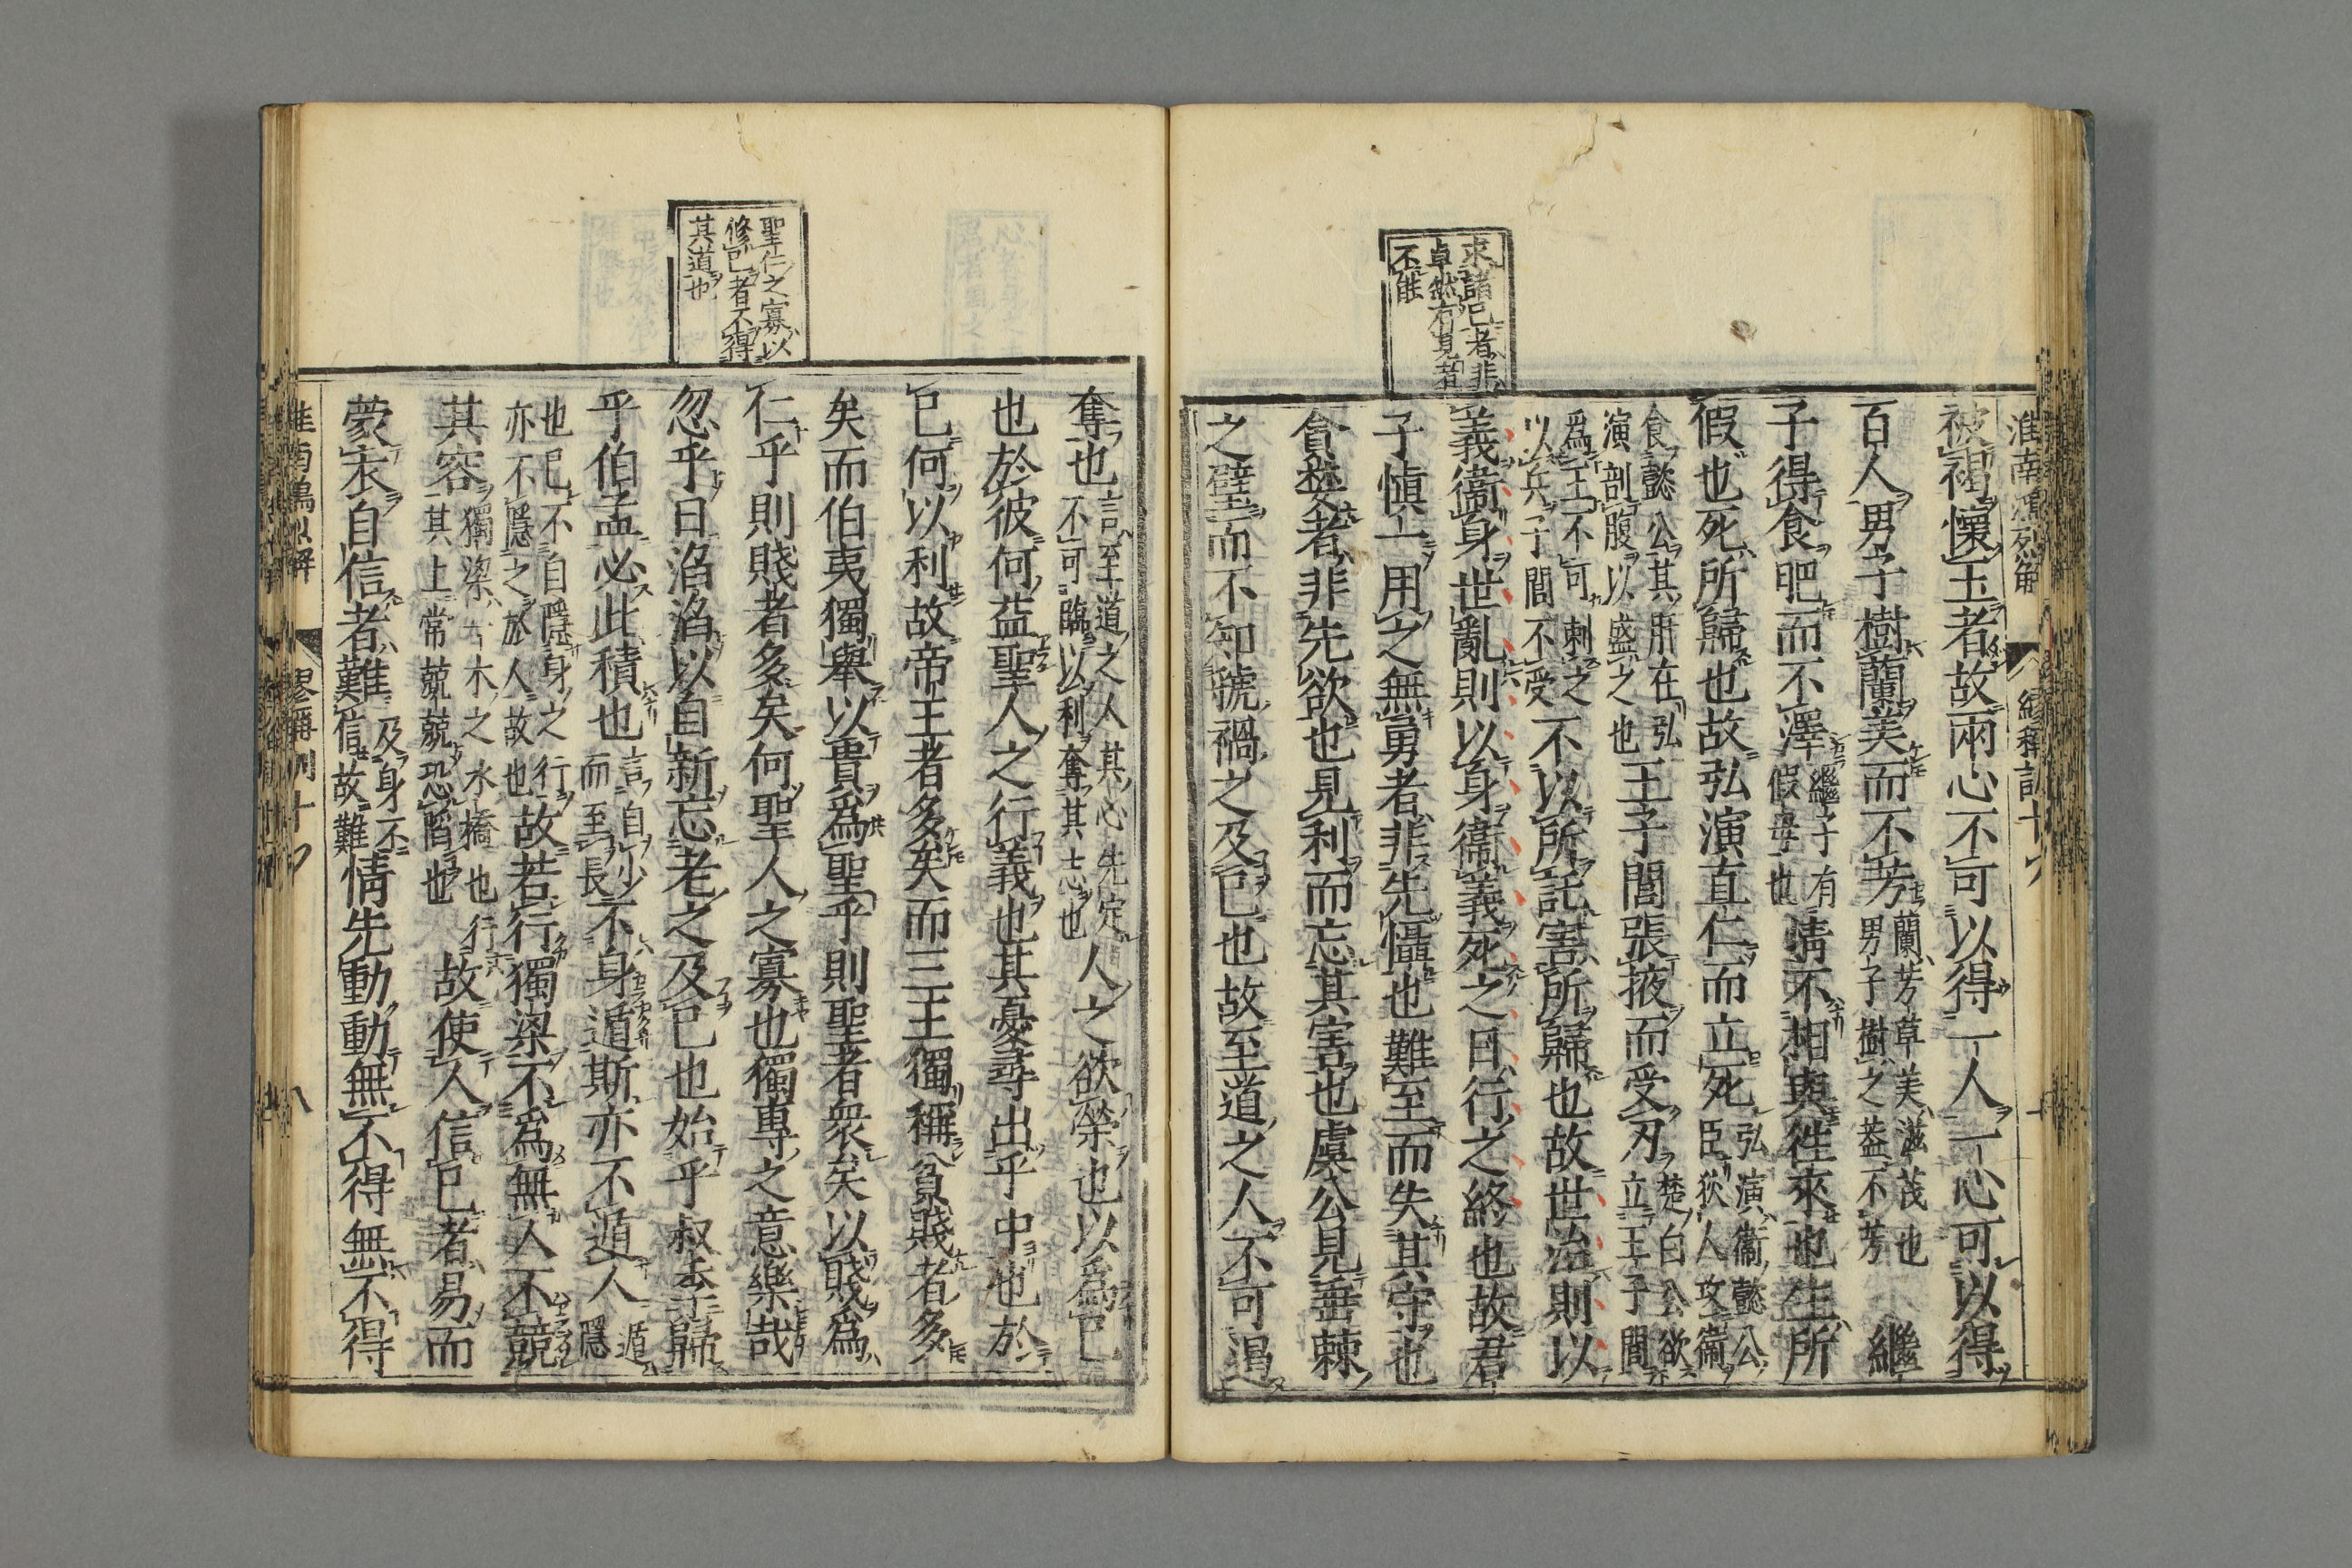 求諸己者非
卓然有見者
不能
淮南鴻烈解
繆稱訓十
被褐懷玉者故兩心不可以得一人一心可以得
百人男子樹蘭美而不芳蘭芳草美滋茂也男子樹之蓋不芳繼
子得食肥而不澤繼子有假母也情不相與往來也生所
假也死所歸也故弘演直仁而立死弘演衞懿公臣狄人攻衞
食懿公其肝在弘演剖腹以盛之也王子閭張掖而受刃楚白公欲立王子閭
爲王王不可刺之以兵子閭不受不以所託害所歸也故世治則以
義衞身世亂則以身衞義死之日行之終也故君
子愼一用之無勇者非先懾也難至而失其守也
貪婪者非先欲也見利而忘其害也虞公見垂棘
之璧而不知虢禍之及己也故至道之人不可遏
聖仁之寡以
修己者不得
其道也
奪也言至道之人其心先定不可臨以利奪其志也人之欲榮也以爲己
也於彼何益聖人之行義也其憂尋出乎中也於
己何以利故帝王者多矣而三王獨稱貧賤者多
矣而伯夷獨舉以貴爲聖乎則聖者衆矣以賤爲
仁乎則賤者多矣何聖人之寡也獨專之意樂哉
忽乎日滔滔以自新忘老之及己也始乎叔季歸
乎伯孟必此積也言自少而至長不身遁斯亦不遁人遁隱
也己不自隱身之行亦不隱之於人故也故若行獨梁不爲無人不競
其容獨梁一木之水橋也行其上常兢兢恐陷也故使人信己者易而
蒙衣自信者難及身不信故難也情先動動無不得無不得
淮南鴻烈解
繆稱訓十
八